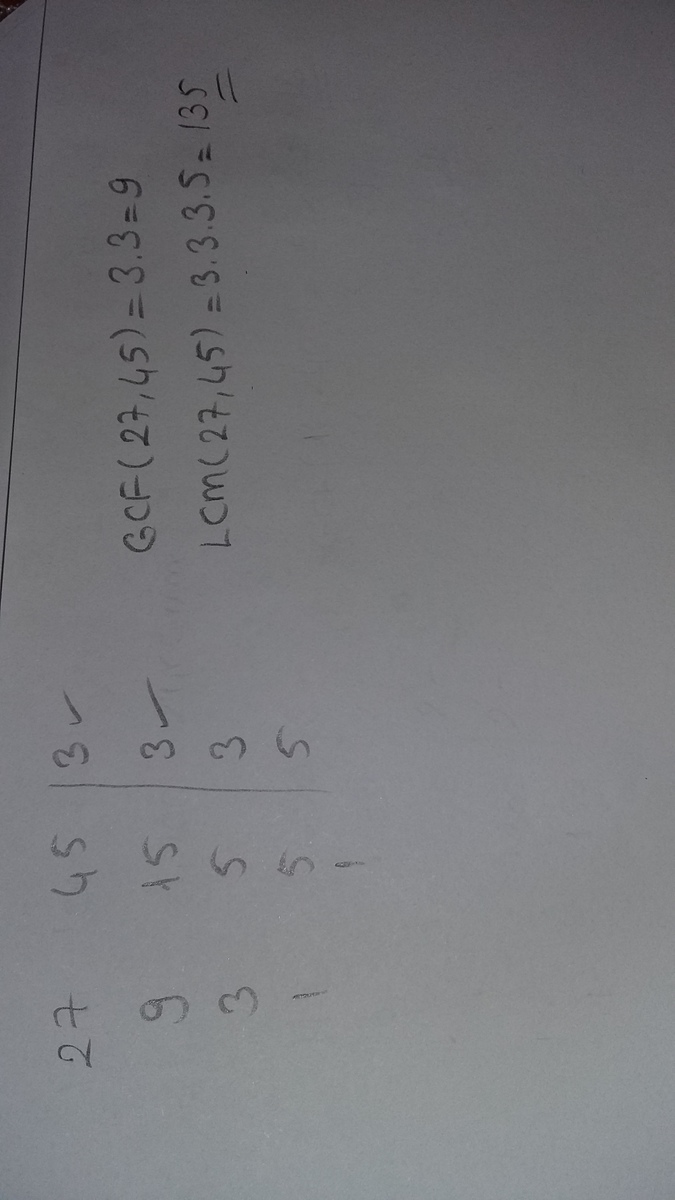 27 45 | 3 ✓
9 15 | 3 ✓
3 5 | 3
1 5 | 5
1
GCF(27,45)=3.3=9
LCM(27,45)=3.3.3.5=135